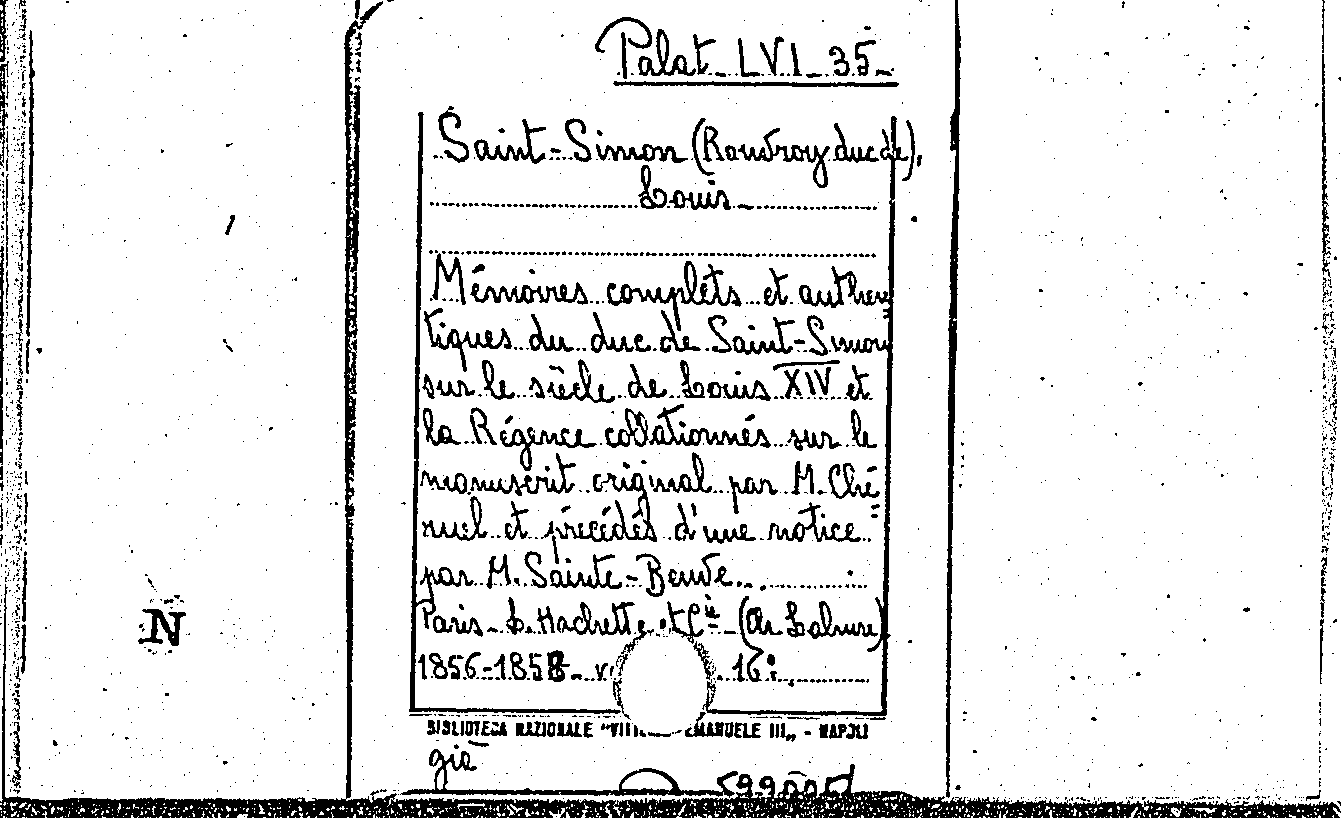 Palat. LVI. 35.
Saint-Simon (Rouvroy duc de),
Louis.
Mémoires complets et authen
tiques du duc de Saint-Simon
sur le siècle de Louis XIV et
la Régence collationnés sur le
manuscrit original par M. Ché
ruel et précédés d'une notice
par M. Sainte-Beuve.
Paris. L. Hachette et Cie (Ch. Lahure)
1856-1858 16°.
BIBLIOTECA NAZIONALE "VITT EMANUELE III„ - NAPOLI
già
N